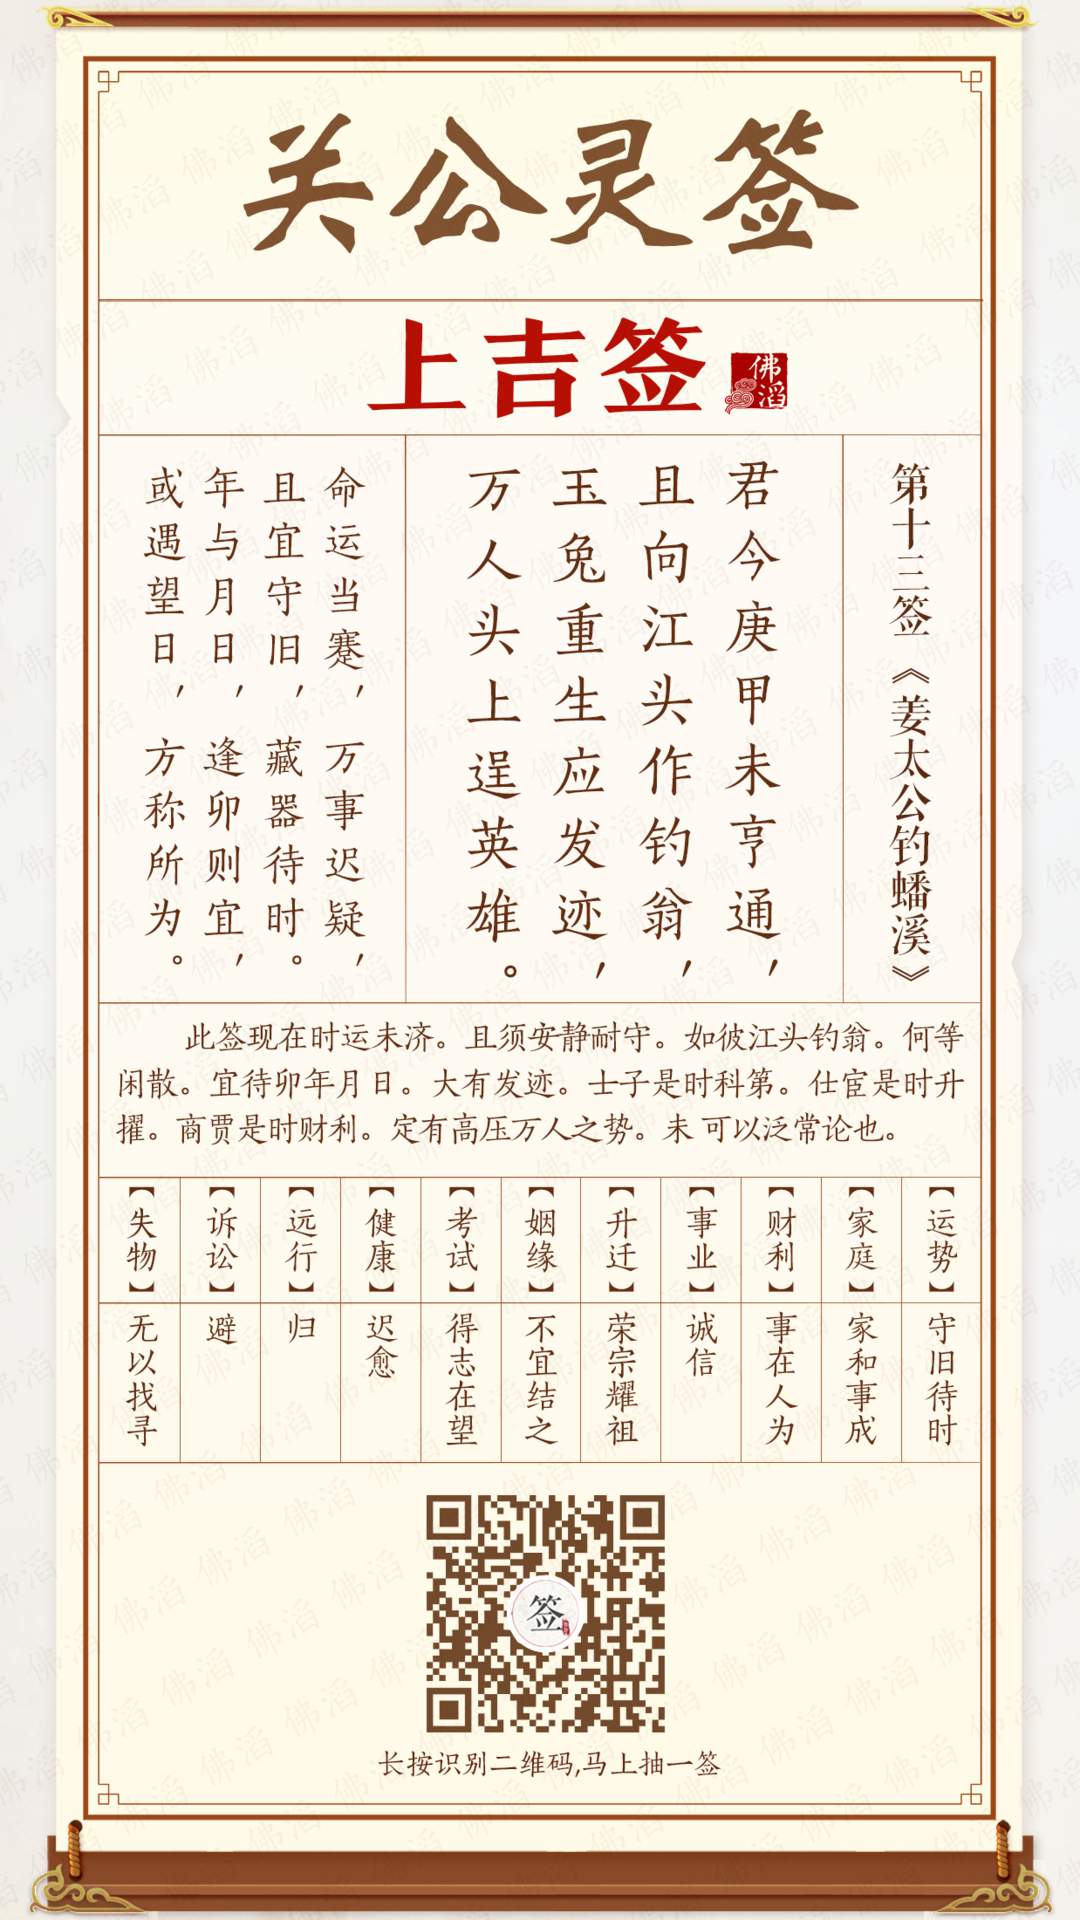 关公灵签
上吉签
佛滔
第十三签《姜太公钓蟠溪》
君今庚甲未亨通，
且向江头作钓翁，
玉兔重生应发迹，
万人头上逞英雄。
命运当蹇，万事迟疑，
且宜守旧，藏器待时。
年与月日，逢卯则宜，
或遇望日，方称所为。
此签现在时运未济。且须安静耐守。如彼江头钓翁。何等
闲散。宜待卯年月日。大有发迹。士子是时科第。仕宦是时升
擢。商贾是时财利。定有高压万人之势。未 可以泛常论也。
【运势】守旧待时
【家庭】家和事成
【财利】事在人为
【事业】诚信
【升迁】荣宗耀祖
【姻缘】不宜结之
【考试】得志在望
【健康】迟愈
【远行】归
【诉讼】避
【失物】无以找寻
签
长按识别二维码,马上抽一签